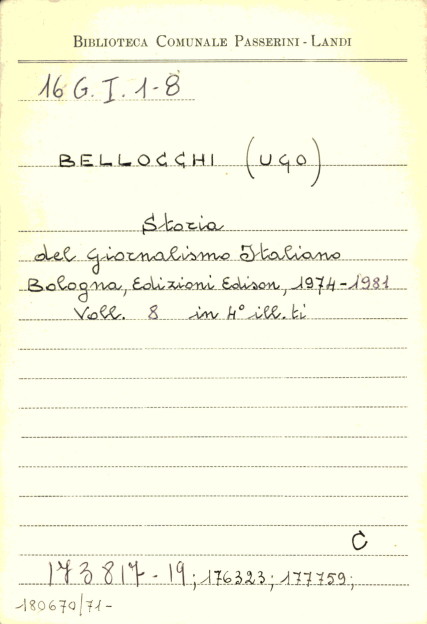 BIBLIOTECA COMUNALE PASSERINI - LANDI
16 G. I. 1-8
BELLOCCHI (UGO)
Storia
del Giornalismo Italiano
Bologna, Edizioni Edison, 1974-1981
Voll. 8 in 4° ill.ti
C
173817-19; 176323; 177759;
180670/71-